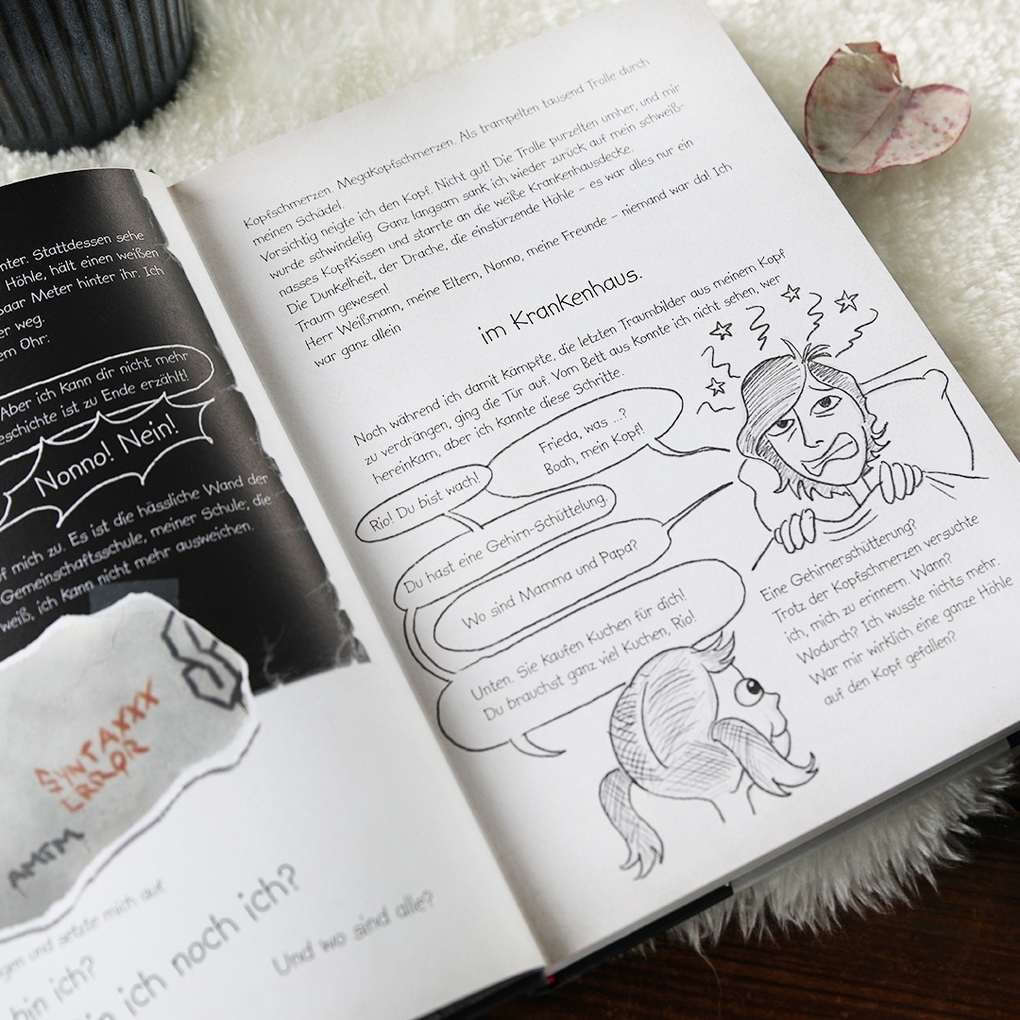 nter. Stattdessen sehe
Höhle, hält einen weißen
paar Meter hinter ihr. Ich
er weg.
em Ohr:
Aber ich kann dir nicht mehr
eschichte ist zu Ende erzählt!
Nonno! Nein!
f mich zu. Es ist die hässliche Wand der
Gemeinschaftsschule, meiner Schule; die
weiß, ich kann nicht mehr ausweichen.
SYNTAXXX
ERROR
AMTM
gen und setzte mich auf
bin ich?
in ich noch ich?
Und wo sind alle?
Kopfschmerzen. Megakopfschmerzen. Als trampelten tausend Trolle durch
meinen Schädel.
Vorsichtig neigte ich den Kopf. Nicht gut! Die Trolle purzelten umher, und mir
wurde schwindelig. Ganz langsam sank ich wieder zurück auf mein schweiß-
nasses Kopfkissen und starrte an die weiße Krankenhausdecke.
Die Dunkelheit, der Drache, die einstürzende Höhle – es war alles nur ein
Traum gewesen!
Herr Weißmann, meine Eltern, Nonno, meine Freunde – niemand war da! Ich
war ganz allein
im Krankenhaus.
Noch während ich damit kämpfte, die letzten Traumbilder aus meinem Kopf
zu verdrängen, ging die Tür auf. Vom Bett aus konnte ich nicht sehen, wer
hereinkam, aber ich kannte diese Schritte.
Frieda, was ...?
Boah, mein Kopf!
Rio! Du bist wach!
Du hast eine Gehirn-Schüttelung.
Wo sind Mamma und Papa?
Unten. Sie kaufen Kuchen für dich!
Du brauchst ganz viel Kuchen, Rio!
Eine Gehirnerschütterung?
Trotz der Kopfschmerzen versuchte
ich, mich zu erinnern. Wann?
Wodurch? Ich wusste nichts mehr.
War mir wirklich eine ganze Höhle
auf den Kopf gefallen?